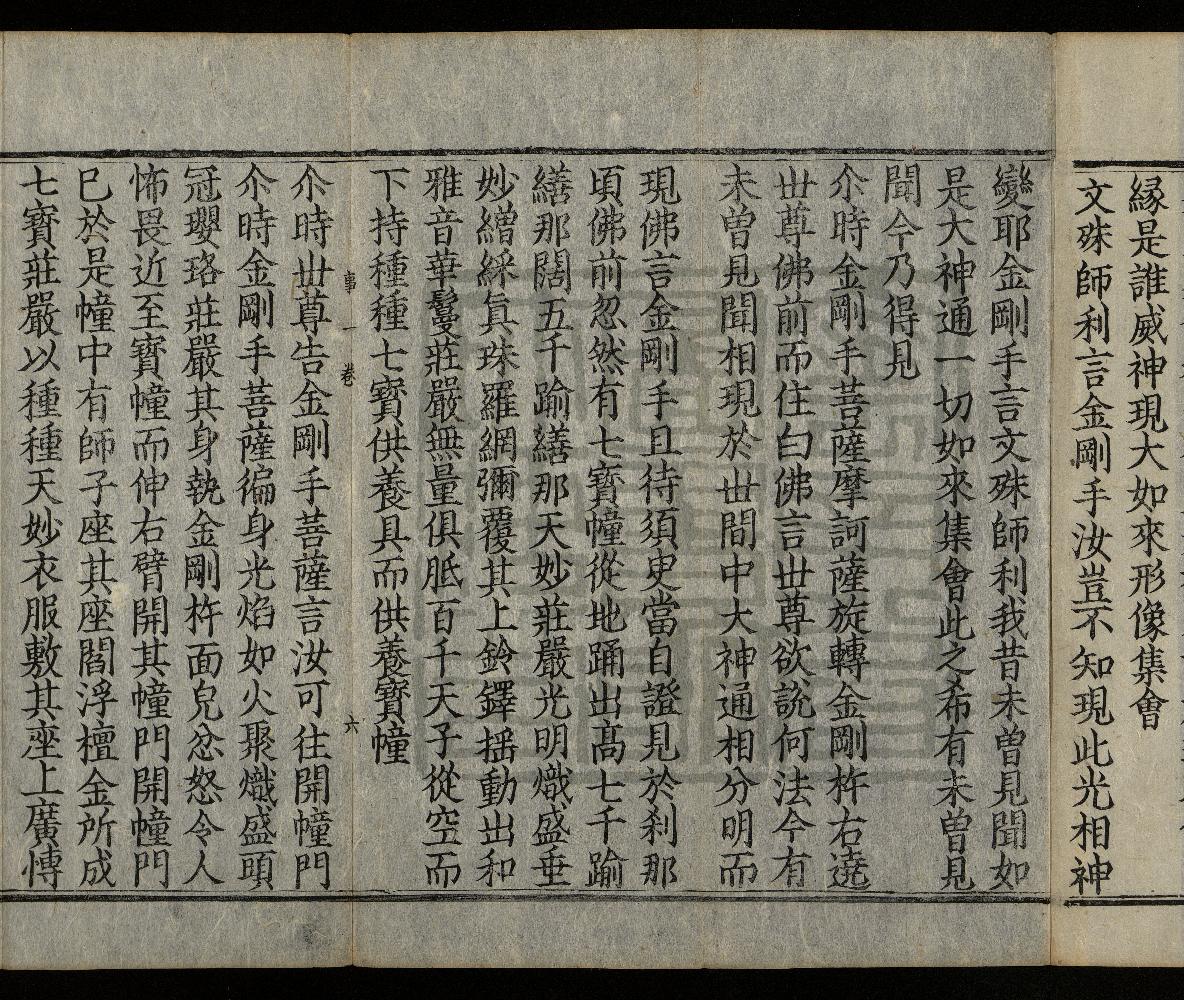 縁是誰威神現大如來形像集會
文殊師利言金剛手汝豈不知現此光相神
變耶金剛手言文殊師利我昔未曽見聞如
是大神通一切如來集會此之希有未曽見
聞今乃得見
尒時金剛手菩薩摩訶薩旋轉金剛杵右遶
丗尊佛前而住白佛言丗尊欲說何法今有
未曽見聞相現於丗間中大神通相分明而
現佛言金剛手且待須臾當自證見於刹那
頃佛前忽然有七寳幢從地踊出髙七千踰
繕那闊五千踰繕那天妙莊嚴光明熾盛垂
妙繒綵眞珠羅網彌覆其上鈴鐸揺動出和
雅音華鬘莊嚴無量俱胝百千天子從空而
下持種種七寳供養具而供養寳幢
事一卷 六
尒時丗尊告金剛手菩薩言汝可往開幢門
尒時金剛手菩薩徧身光焰如火聚熾盛頭
冠瓔珞莊嚴其身執金剛杵面皃忿怒令人
怖畏近至寳幢而伸右臂開其幢門開幢門
已於是幢中有師子座其座閻浮檀金所成
七寳莊嚴以種種天妙衣服敷其座上廣慱